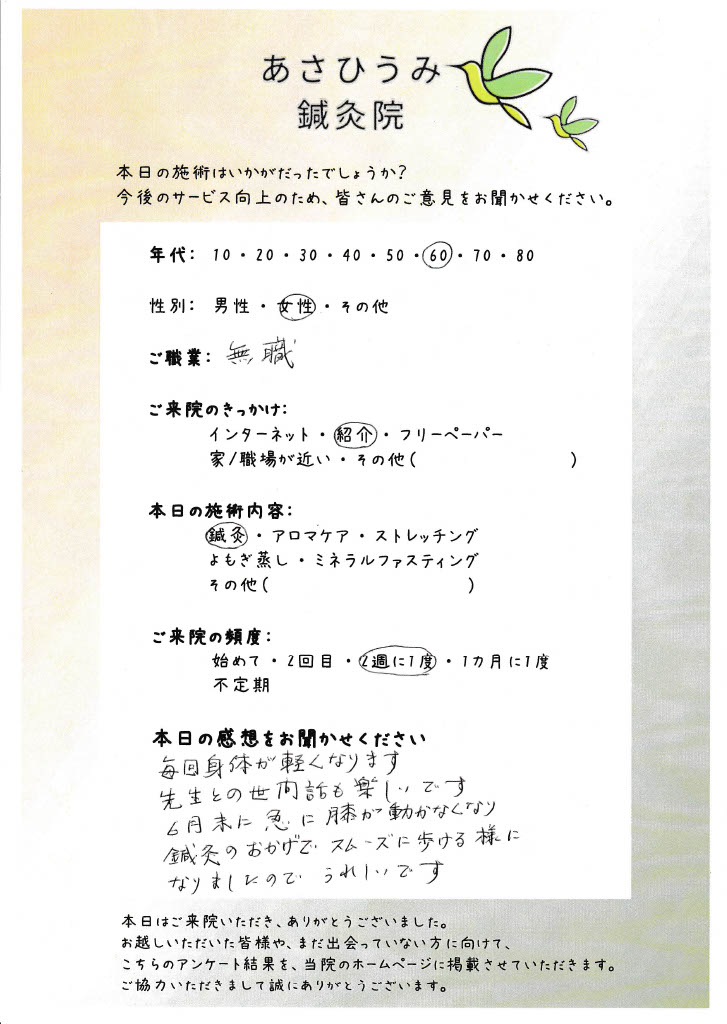 あさひうみ
鍼灸院
本日の施術はいかがだったでしょうか?
今後のサービス向上のため、皆さんのご意見をお聞かせください。
年代: 10・20・30・40・50・60・70・80
性別: 男性・女性・その他
ご職業: 無職
ご来院のきっかけ:
インターネット・紹介・フリーペーパー
家/職場が近い・その他( )
本日の施術内容:
鍼灸・アロマケア・ストレッチング
よもぎ蒸し・ミネラルファスティング
その他( )
ご来院の頻度:
始めて・2回目・2週に1度・1カ月に1度
不定期
本日の感想をお聞かせください
毎回身体が軽くなります
先生との世間話も楽しいです
6月末に急に膝が動かなくなり
鍼灸のおかげでスムーズに歩ける様に
なりましたので うれしいです
本日はご来院いただき、ありがとうございました。
お越しいただいた皆様や、まだ出会っていない方に向けて、
こちらのアンケート結果を、当院のホームページに掲載させていただきます。
ご協力いただきまして誠にありがとうございます。